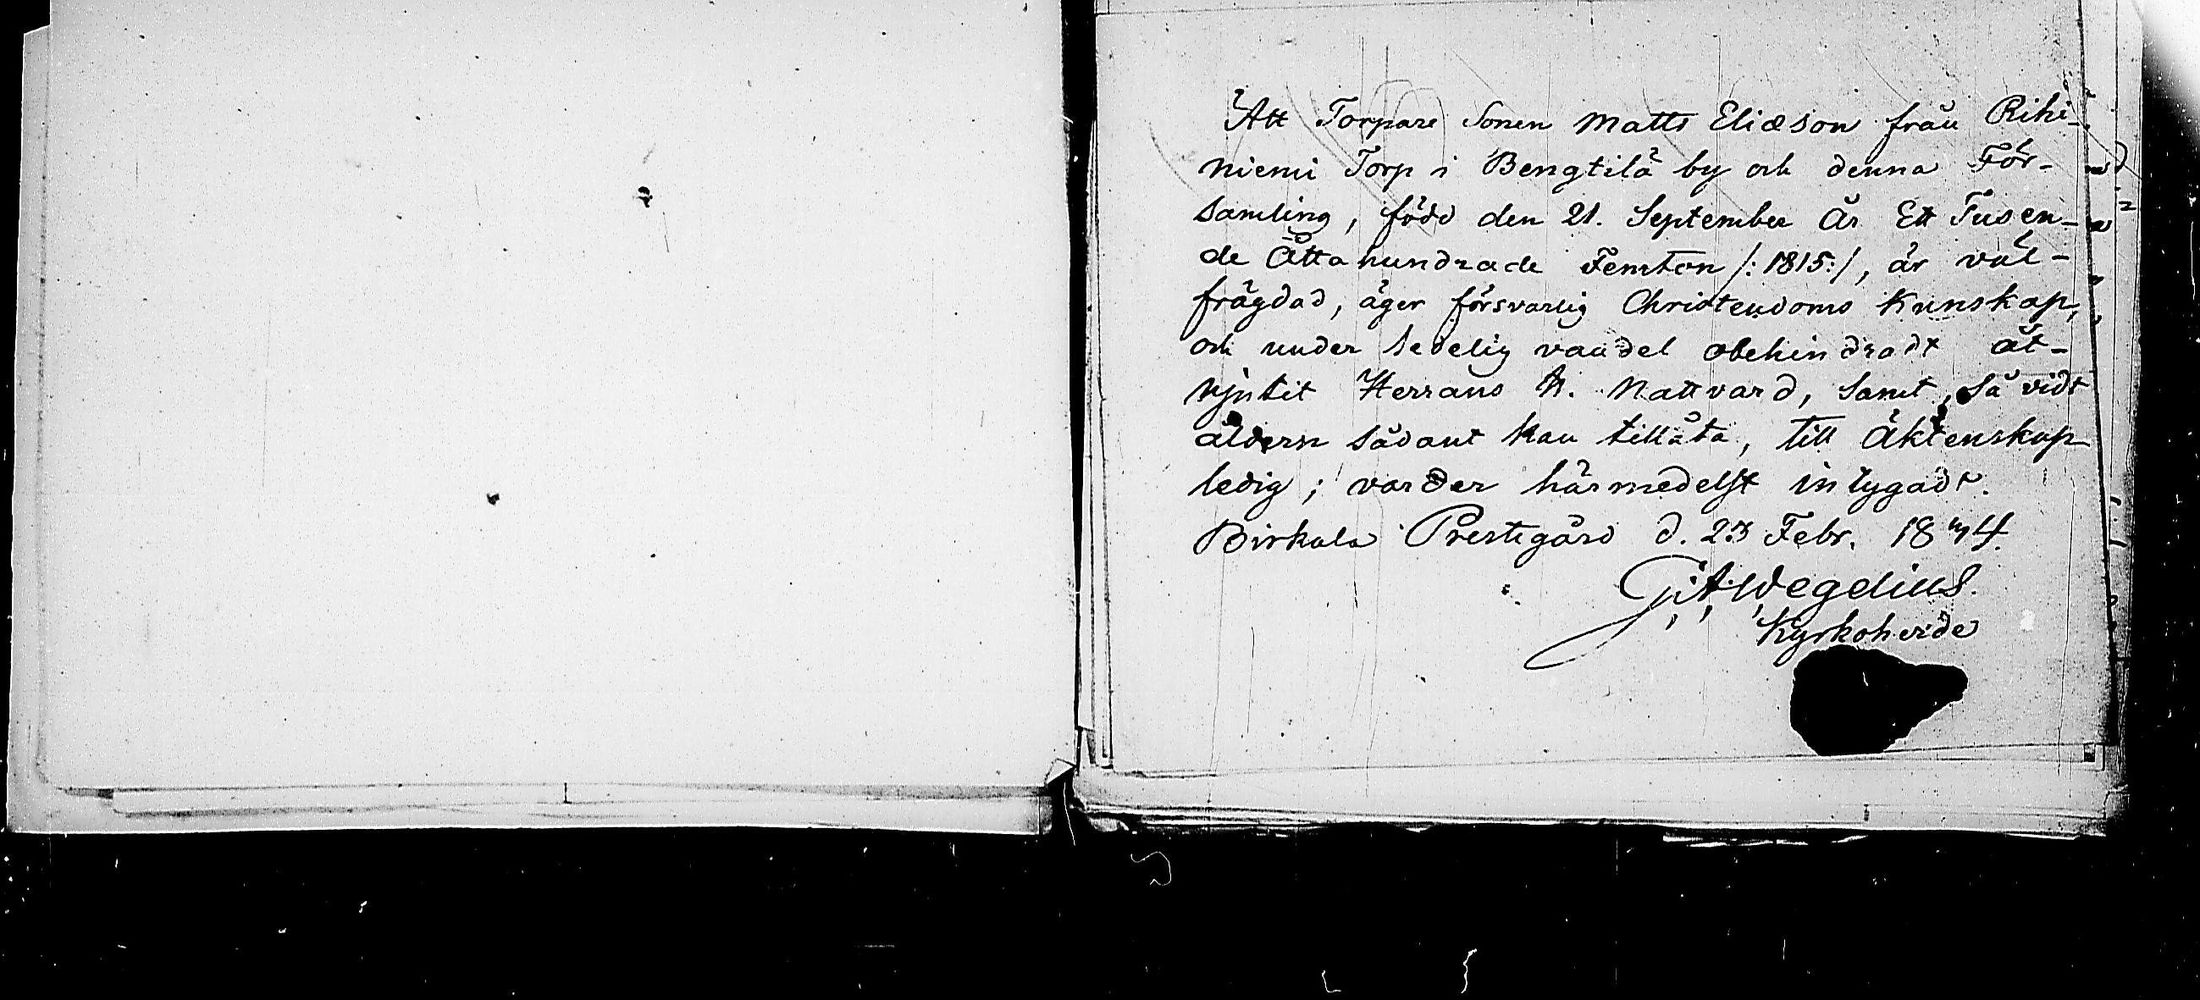 Att Torpare Sonen Matts Eliæson från Rihi-
niemi Torp i Bengtilä by och denna För-
samling, född den 21. September År Ett Tusen-
de Åttahundrade Femton /:1815:/, är väl-
frägdad, äger försvarlig Christendoms Kunskap,
och under sedelig vandel obehindradt åt-
njutit Herrans H. Nattvard, samt, så vidt
åldern sådant kan tillåta, till Äktenskap
ledig; varder härmedelst intygadt.
Birkala Prestegård d. 23 Febr. 1834.
G. A. Wegelius.
Kyrkoherde